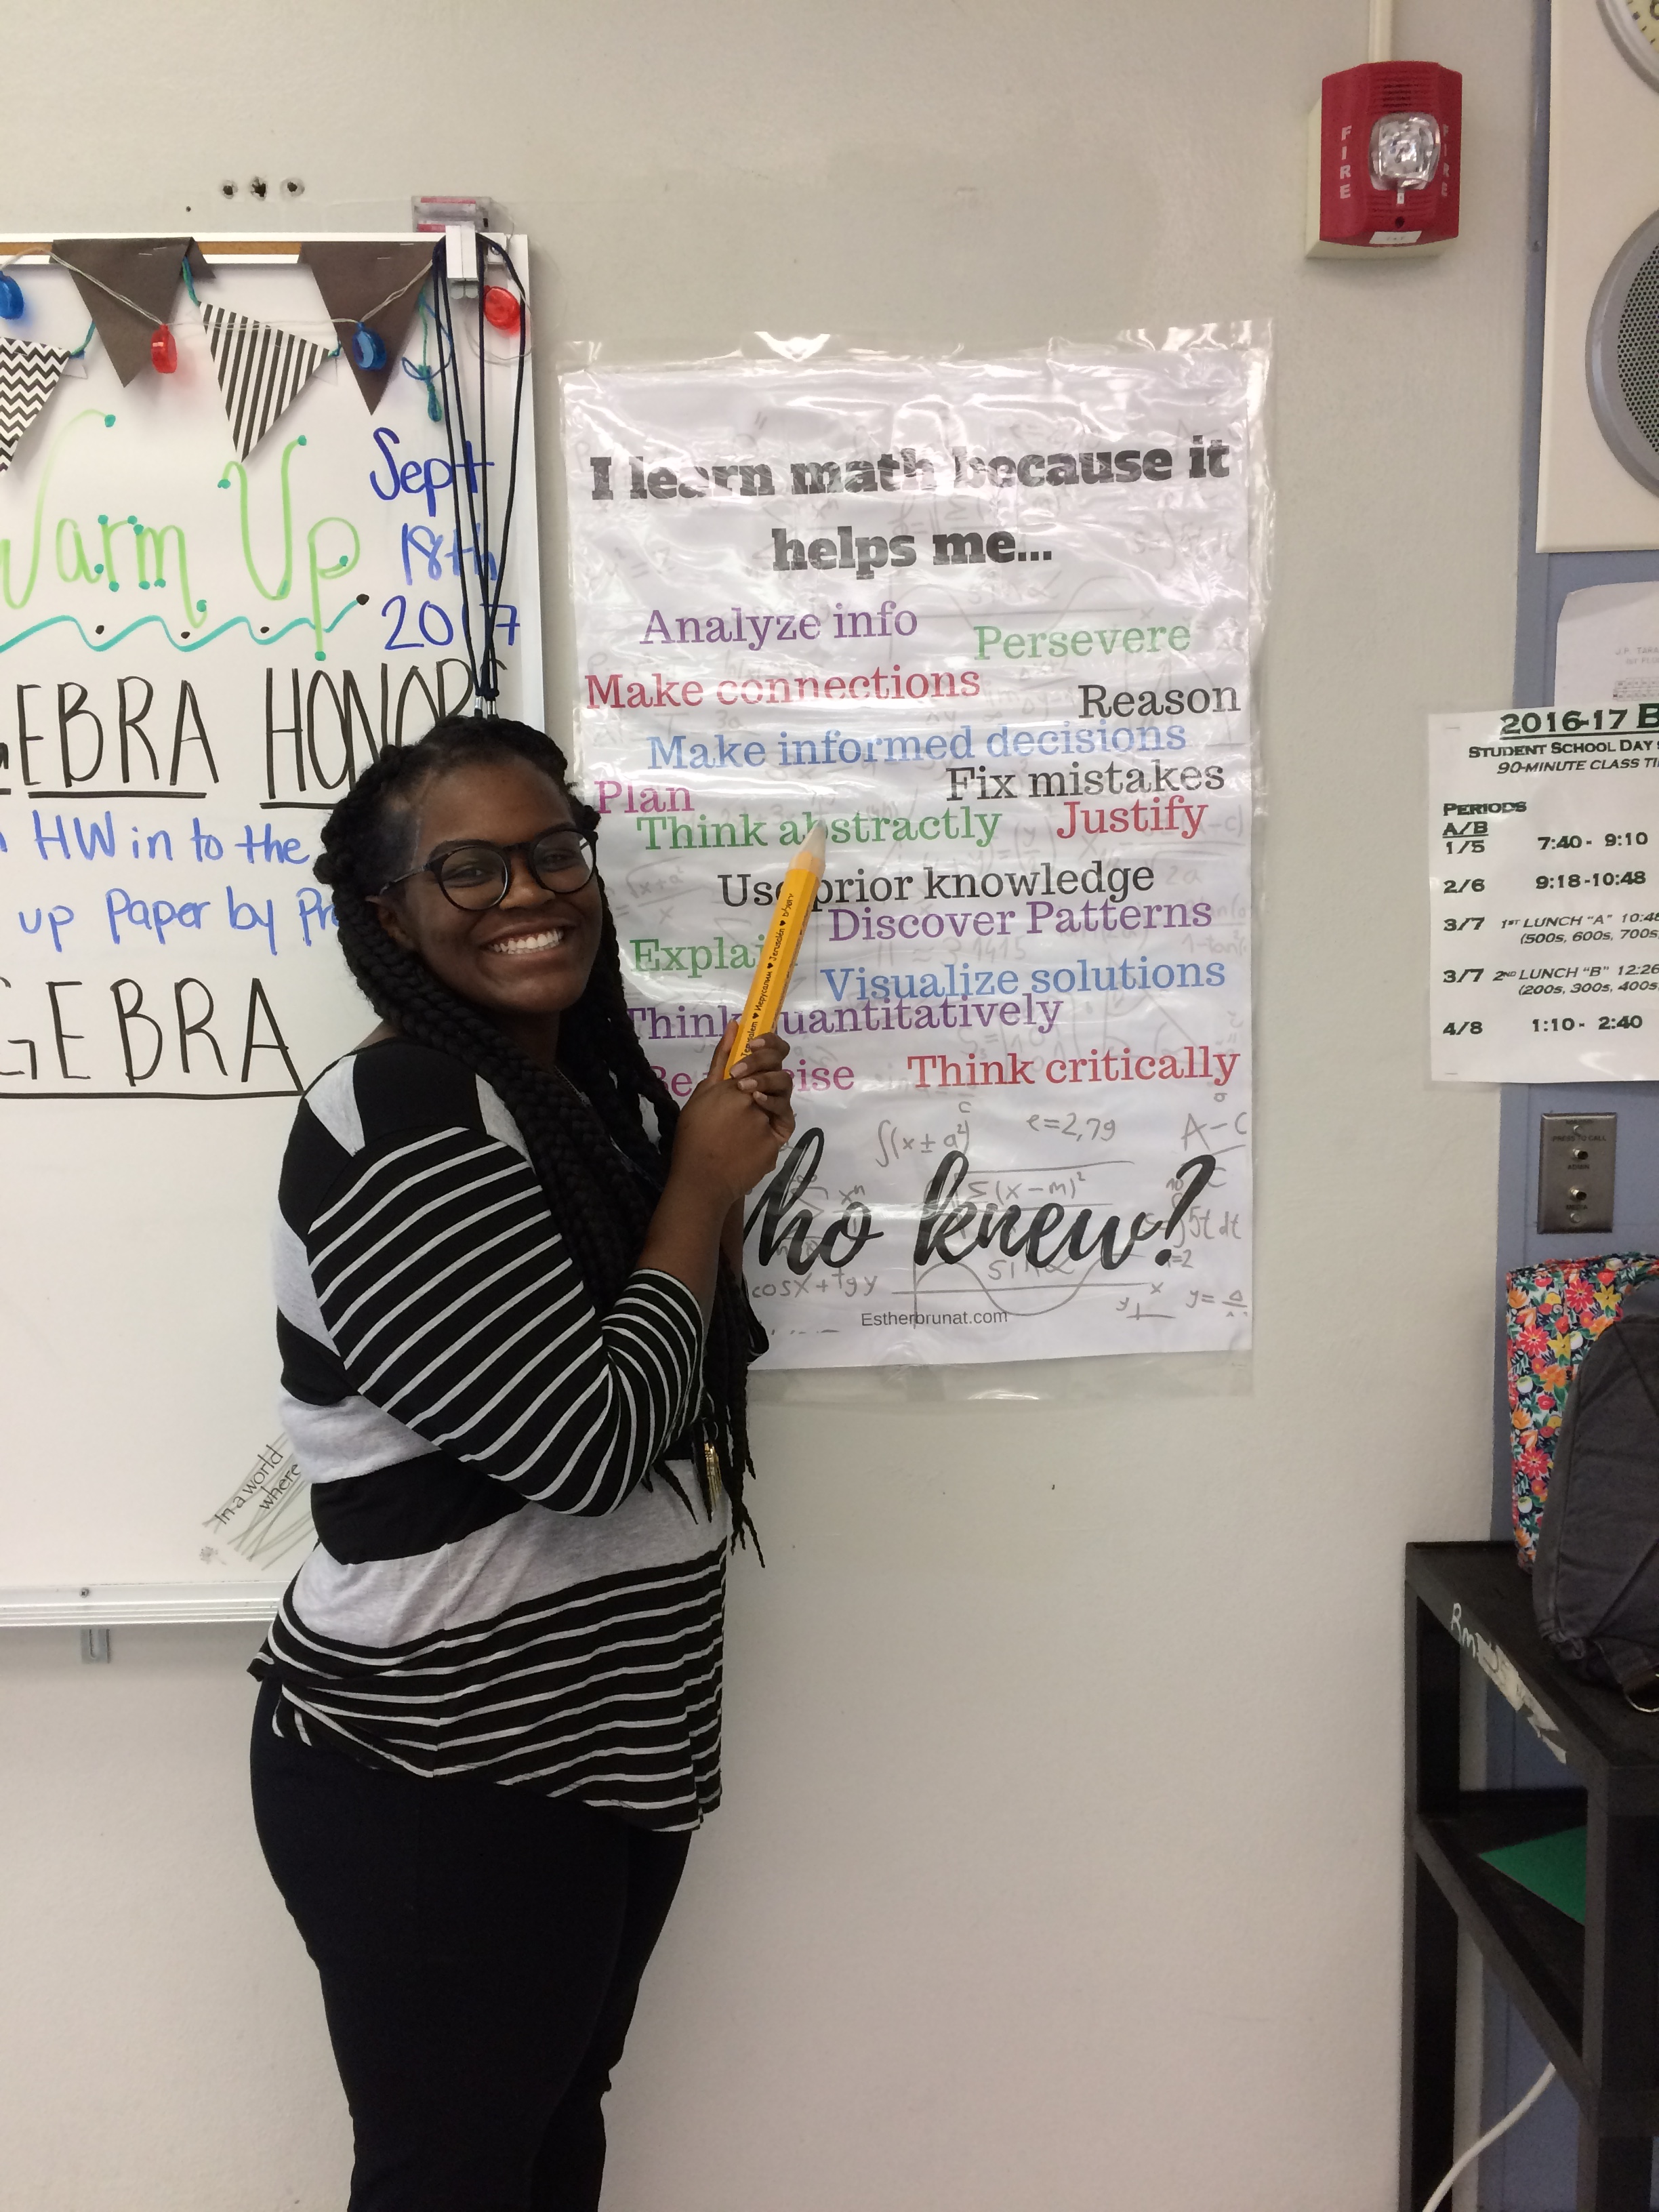 Warm Up
Sept
18th
2017
GEBRA HONORS
HW in to the
up Paper by
GEBRA
In a world
where
I learn math because it
helps me...
Analyze info
Persevere
Make connections
Reason
Make informed decisions
Fix mistakes
Plan
Think abstractly
Justify
Use prior knowledge
Discover Patterns
Explai
Visualize solutions
Think quantitatively
Be cise
Think critically
ho knew?
∫(x ± a²)
e=2,79
A-C
Σ(x-m)²
5t dt
cosx + tgy
sin α
Estherbrunat.com
Jerusalem ♥ Иерусалим ♥ Jerusalén ♥
FIRE
FIRE
2016-17 B
STUDENT SCHOOL DAY
90-MINUTE CLASS TI
PERIODS
A/B
1/5 7:40 - 9:10
2/6 9:18-10:48
3/7 1ST LUNCH "A" 10:48
(500s, 600s, 700s,
3/7 2ND LUNCH "B" 12:26
(200s, 300s, 400s
4/8 1:10 - 2:40